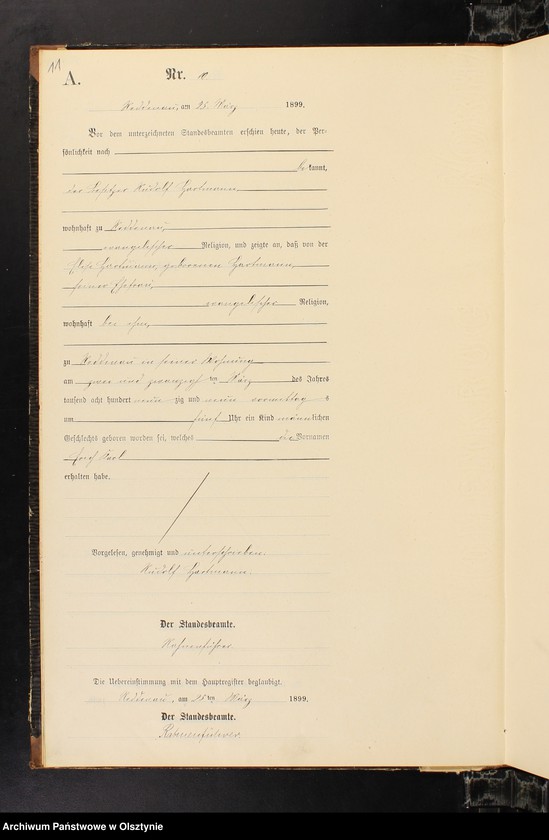 11
A.
Nr. 10
Reddenau, am 25. März 1899.
Vor dem unterzeichneten Standesbeamten erschien heute, der Per-
sönlichkeit nach
be kannt,
der Besitzer Rudolf Hartmann
wohnhaft zu Reddenau,
evangelischer Religion, und zeigte an, daß von der
Hartmann, geborenen Hartmann,
seiner Ehefrau,
evangelischer Religion,
wohnhaft bei ihm,
zu Reddenau in seiner Wohnung
am zwei und zwanzigsten März des Jahres
tausend acht hundert neunzig und neun Vormittags
um fünf Uhr ein Kind männlichen
Geschlechts geboren worden sei, welches die Vornamen
Karl
erhalten habe.
Vorgelesen, genehmigt und unterschrieben.
Rudolf Hartmann
Der Standesbeamte.
Die Uebereinstimmung mit dem Hauptregister beglaubigt.
Reddenau, am 25ten März 1899.
Der Standesbeamte.
Archiwum Państwowe w Olsztynie